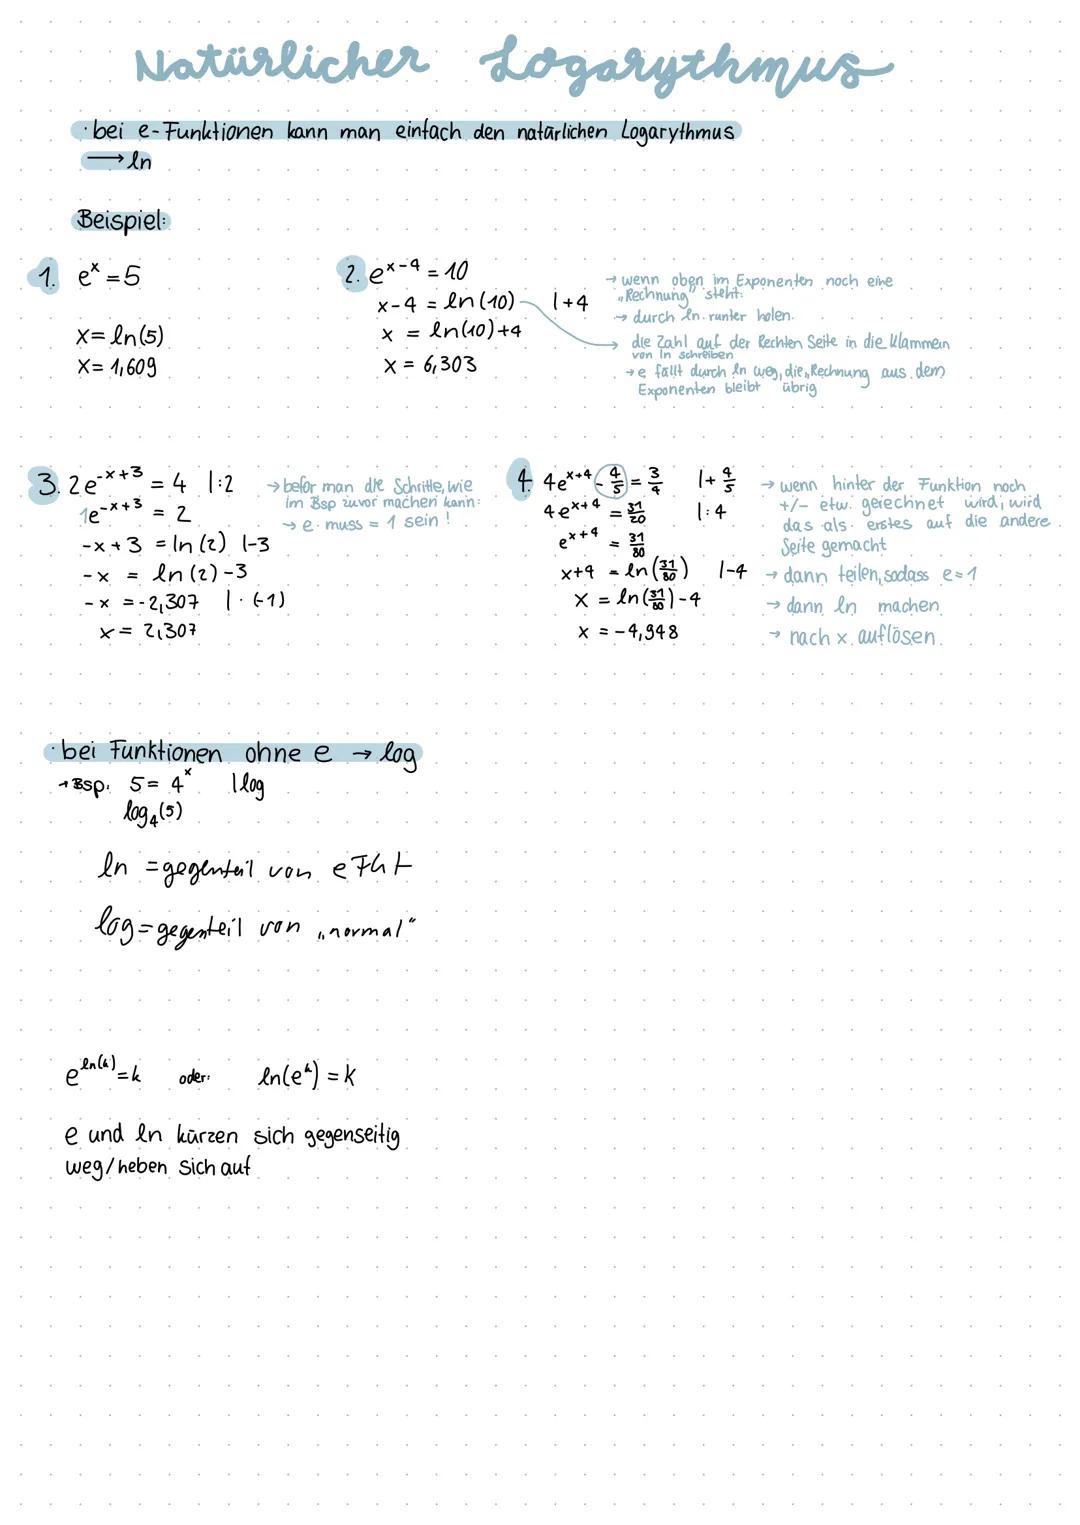 Natürlicher Logarythmus
· bei e-Funktionen kann man einfach den natürlichen Logarythmus
→ ln
Beispiel:
1. e^x = 5
x = ln(5)
x = 1,609
2. e^(x-4) = 10
x-4 = ln(10) | +4
x = ln(10)+4
x = 6,303
→ wenn oben im Exponenten noch eine
„Rechnung" steht:
→ durch ln runter holen
→ die Zahl auf der Rechten Seite in die Klammern
von ln schreiben
→ e fällt durch ln weg, die „Rechnung aus dem
Exponenten bleibt übrig
3. 2e^(-x+3) = 4 | :2
1e^(-x+3) = 2
-x+3 = ln(2) | -3
-x = ln(2)-3
-x = -2,307 | · (-1)
x = 2,307
→ befor man die Schritte, wie
im Bsp zuvor machen kann:
→ e muss = 1 sein!
4. 4e^(x+4) - 4/5 = 3/4 | + 4/5
4e^(x+4) = 31/20 | :4
e^(x+4) = 31/80
x+4 = ln(31/80) | -4
x = ln(31/80)-4
x = -4,948
→ wenn hinter der Funktion noch
+/- etw. gerechnet wird, wird
das als erstes auf die andere
Seite gemacht
→ dann teilen, sodass e=1
→ dann ln machen
→ nach x auflösen
· bei Funktionen ohne e → log
→ Bsp. 5 = 4^x | log
log₄(5)
ln = gegenteil von e Fkt
log = gegenteil von „normal"
e^(ln(k)) = k oder: ln(e^k) = k
e und ln kürzen sich gegenseitig
weg/heben sich auf